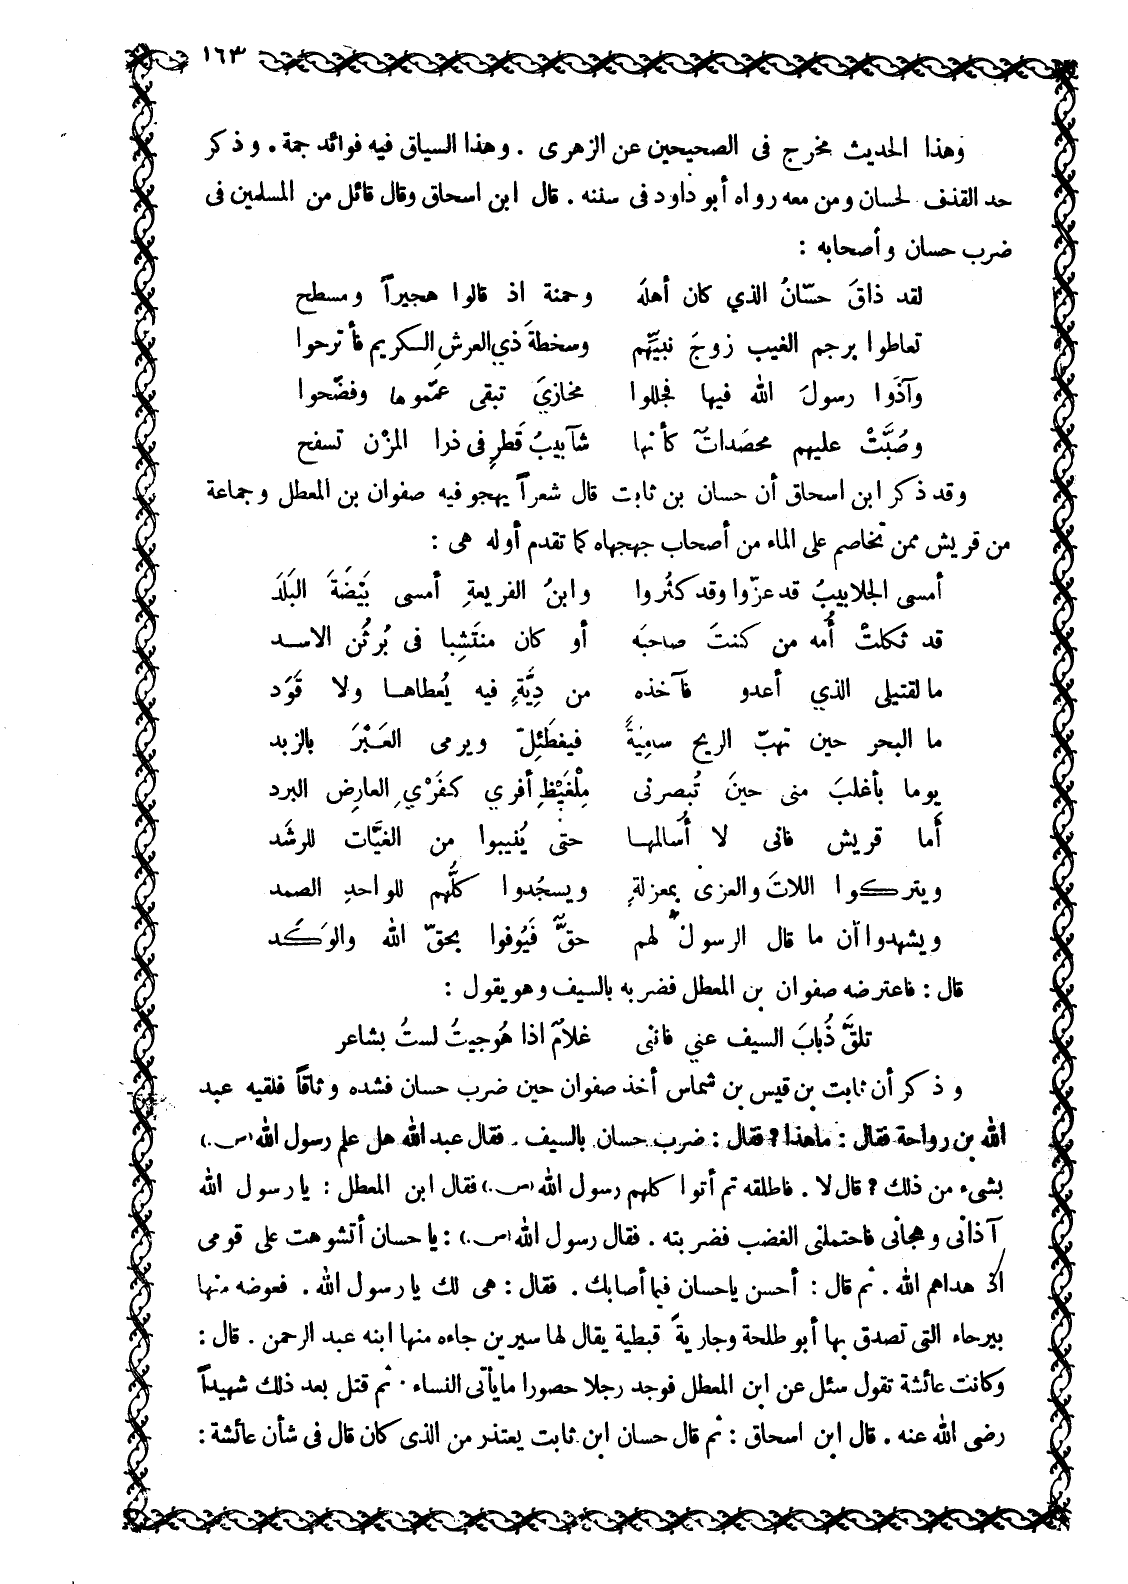 ١٦٣
وهذا الحديث مخرج فى الصحيحين عن الزهرى . وهذا السياق فيه فوائد جمة . وذكر
حد القذف لحسان ومن معه رواه أبو داود فى سننه . قال ابن اسحاق وقال قائل من المسلمين فى
ضرب حسان وأصحابه :
لقد ذاقَ حسّانُ الذي كان أهلَه وحمنة اذ قالوا هجيراً ومسطح
تعاطوا برجم الغيب زوجَ نبيِّهم وسخطةَ ذي العرشِ الكريم فأترحوا
وآذَوا رسولَ الله فيها فجللوا مخازيَ تبقى عمّموها وفضّحوا
وصُبَّتْ عليهم محصَداتٌ كأنها شآبيبُ قَطرٍ فى ذرا المزْن تسفح
وقد ذكر ابن اسحاق أن حسان بن ثابت قال شعراً يهجو فيه صفوان بن المعطل وجماعة
من قريش ممن تخاصم على الماء من أصحاب جهجهاه كما تقدم أوله هى :
أمسى الجلابيبُ قد عزّوا وقد كثُروا وابنُ الفريعةِ أمسى بَيْضَةَ البَلَدَ
قد ثكلتْ أُمه من كنتَ صاحبَه أو كان منتَشِبا فى بُرثُن الاسد
مالقتيلى الذي أعدو فآخذه من دِيَّةٍ فيه يُعطاها ولا قَوَد
ما البحر حين تهبّ الريح ساميةً فيغطَئِلّ ويرمى العَبْرَ بالزبد
يوما بأغلبَ منى حينَ تُبصرنى مِلْغَيْظِ أفري كفَرْيِ العارِض البرد
أَما قريش فانى لا أُسالمها حتى يُنيبوا من الغيَّات للرشَد
ويتركوا اللاتَ والعزى بمعزلةٍ ويسجُدوا كلُّهم للواحدِ الصمد
ويشهدوا أن ما قال الرسول لهم حقٌّ فَيُوفوا بحقّ الله والوَكَد
قال : فاعترضه صفوان بن المعطل فضربه بالسيف وهو يقول :
تلقَّ ذُبابَ السيف عني فاننى غلامٌ اذا هُوجيتُ لستُ بشاعر
وذكر أن ثابت بن قيس بن شماس أخذ صفوان حين ضرب حسان فشده وثاقاً فلقيه عبد
الله بن رواحة فقال : ماهذا ? فقال : ضرب حسان بالسيف . فقال عبد الله هل علم رسول الله (ص.)
بشىء من ذلك ? قال لا . فاطلقه ثم أتوا كلهم رسول الله (ص.) فقال ابن المعطل : يارسول الله
آذانى وهجانى فاحتملنى الغضب فضربته . فقال رسول الله (ص.) : ياحسان أتشوهت على قومى
اذ هداهم الله . ثم قال : أحسن ياحسان فيما أصابك . فقال : هى لك يارسول الله . فعوضه منها
بيرحاء التى تصدق بها أبو طلحة وجاريةً قبطية يقال لها سيرين جاءه منها ابنه عبد الرحمن . قال :
وكانت عائشة تقول سئل عن ابن المعطل فوجد رجلا حصورا مايأتى النساء . ثم قتل بعد ذلك شهيداً
رضى الله عنه . قال ابن اسحاق : ثم قال حسان ابن ثابت يعتذر من الذى كان قال فى شأن عائشة :